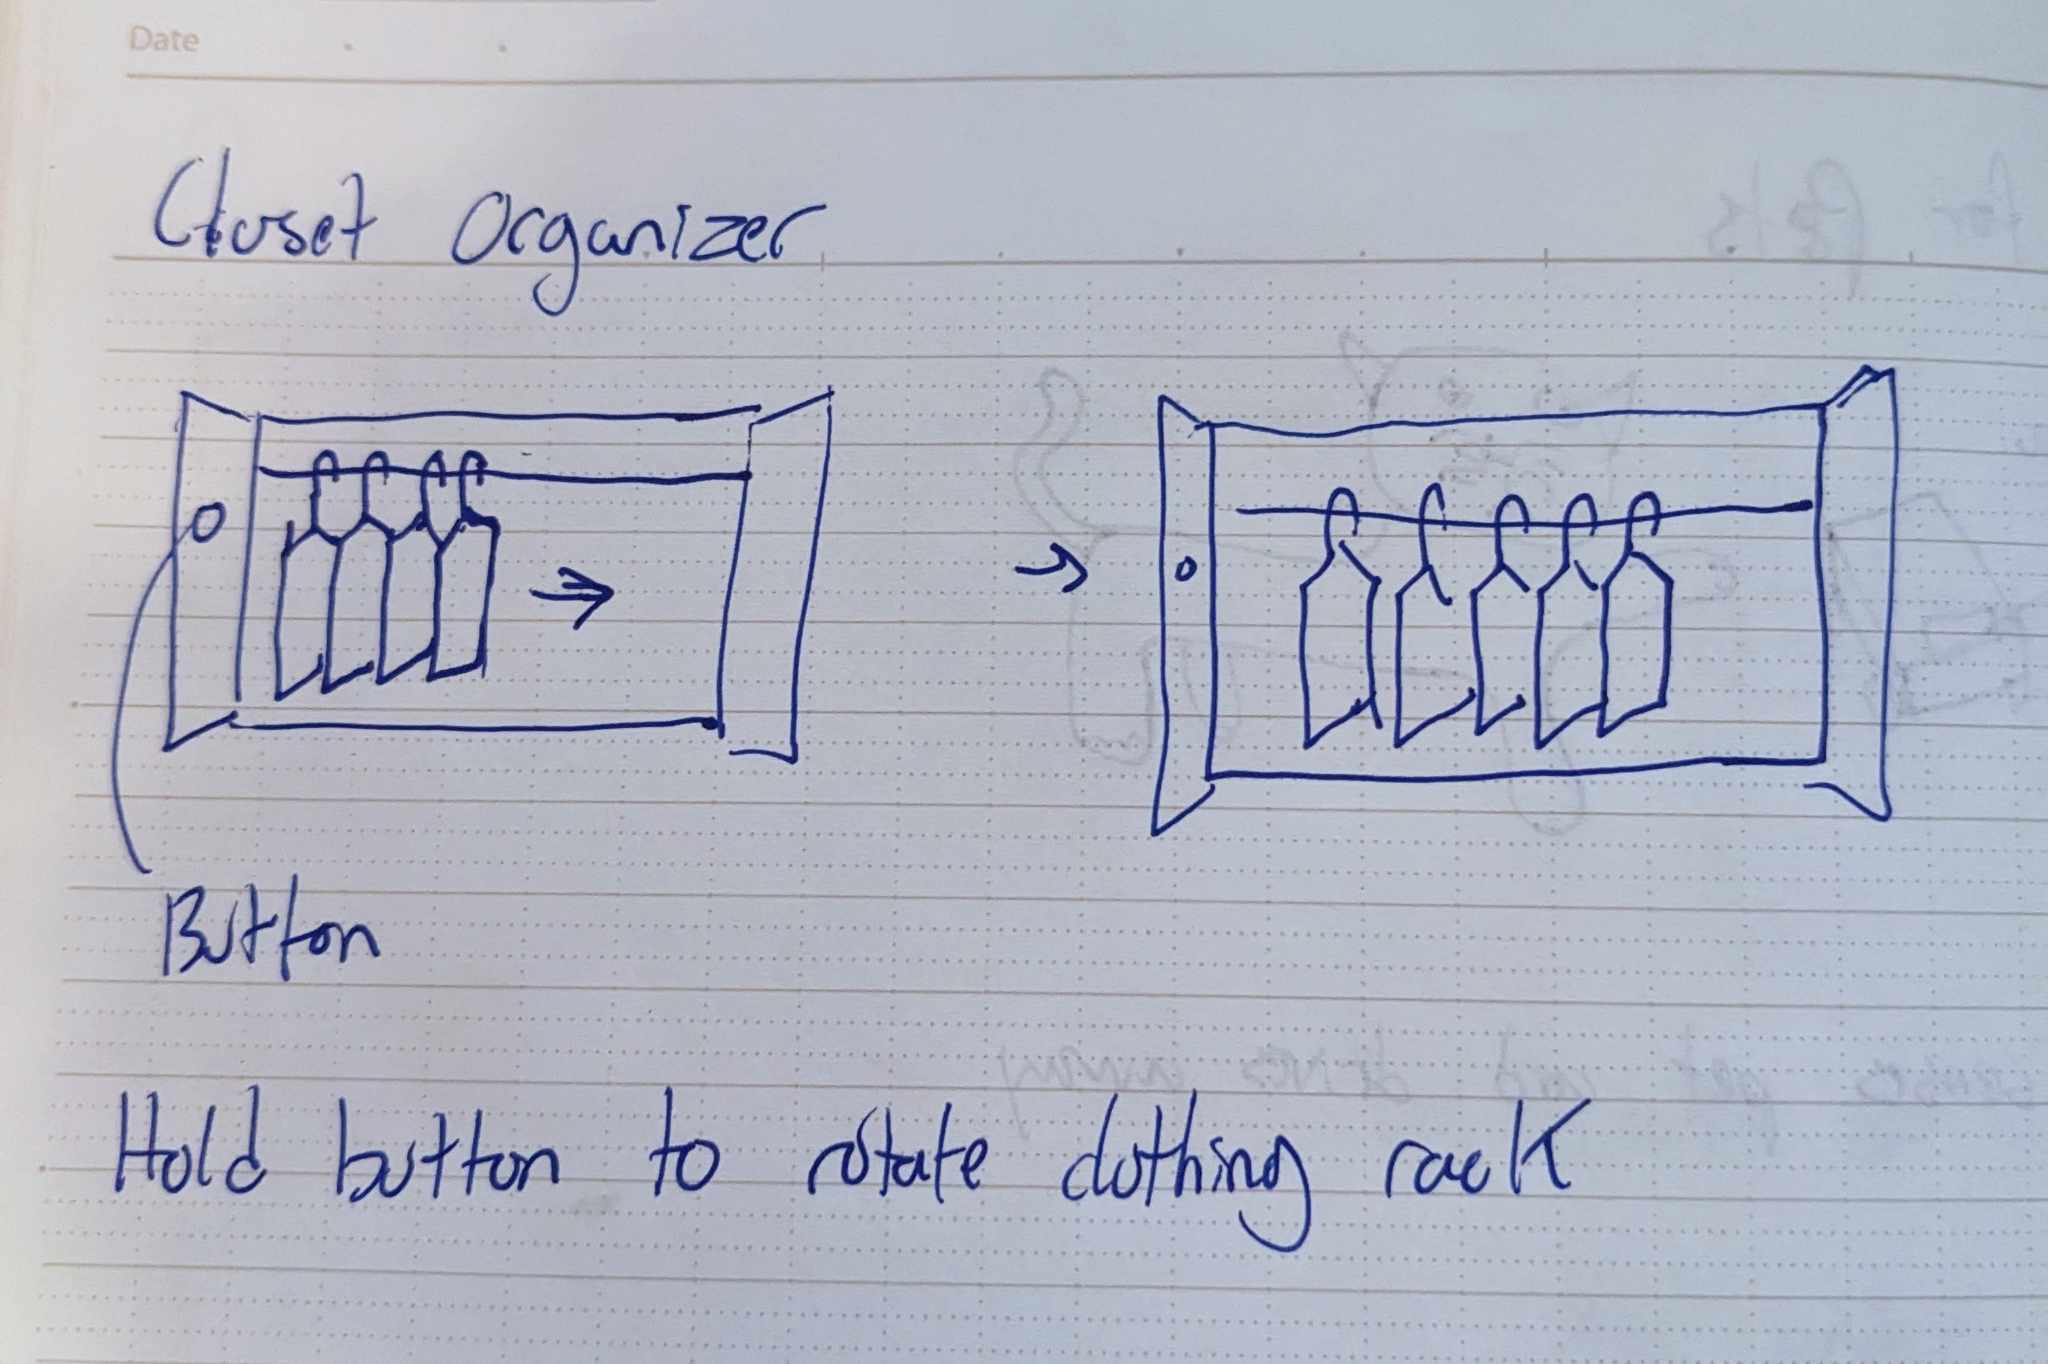 Date
Closet Organizer
Button
Hold button to rotate clothing rack